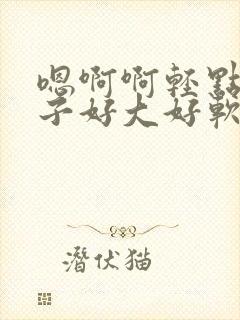 嗯啊啊轻點
子好大好軟
潛伏猫